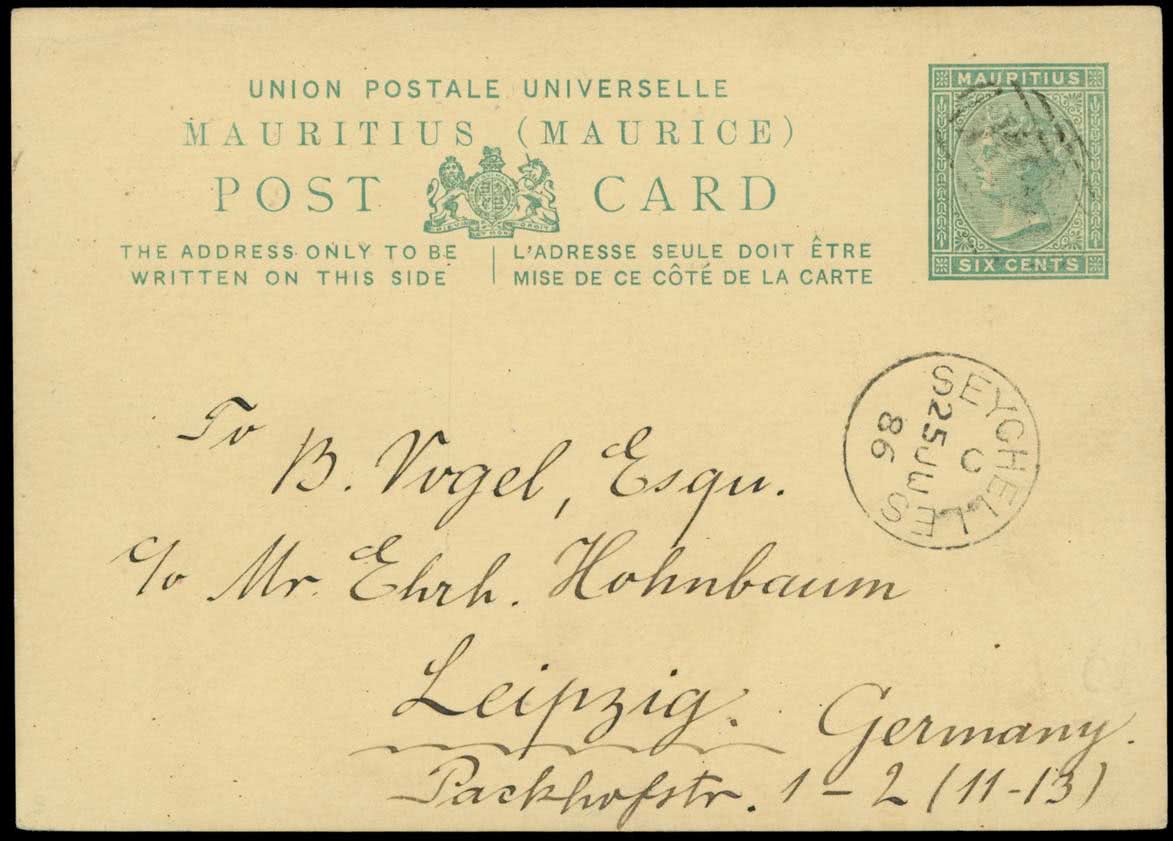 UNION POSTALE UNIVERSELLE
MAURITIUS (MAURICE)
POST CARD
THE ADDRESS ONLY TO BE
WRITTEN ON THIS SIDE
L'ADRESSE SEULE DOIT ÊTRE
MISE DE CE CÔTÉ DE LA CARTE
MAURITIUS
SIX CENTS
SEYCHELLES
C
25 JU
86
To
B. Vogel, Esqu.
c/o Mr. Ehrh. Hohnbaum
Leipzig. Germany.
Packhofstr. 1-2 (11-13)